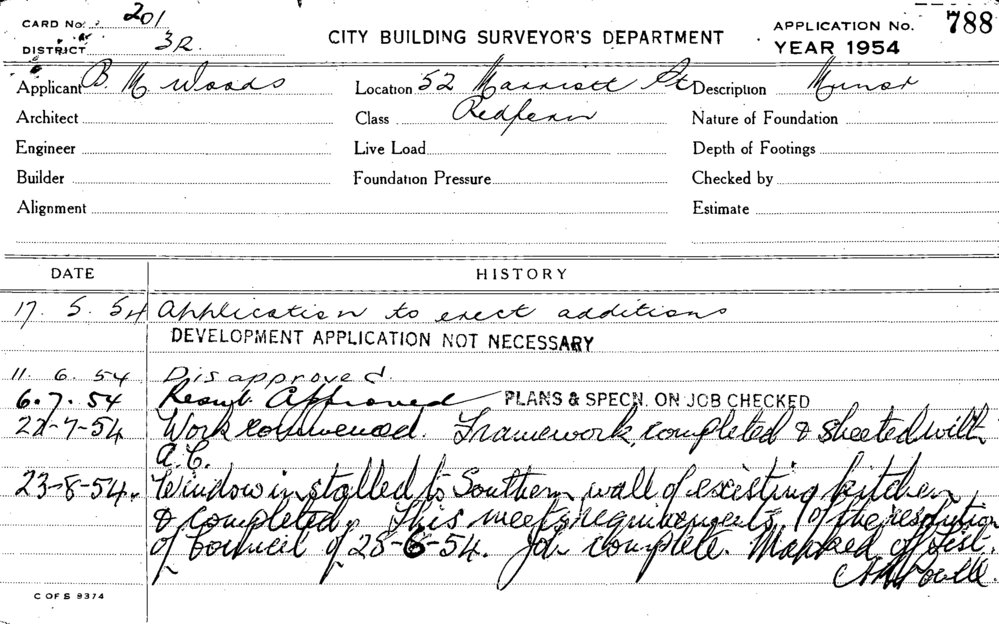 CARD No. 201
DISTRICT 3R.
CITY BUILDING SURVEYOR'S DEPARTMENT
APPLICATION No. 788
YEAR 1954
Applicant B. M. Woods Location 52 Marriott St Description Minor
Architect Class Redfern Nature of Foundation
Engineer Live Load Depth of Footings
Builder Foundation Pressure Checked by
Alignment Estimate
DATE HISTORY
17. 5. 54 Application to erect additions
DEVELOPMENT APPLICATION NOT NECESSARY
11. 6. 54 Disapproved.
6. 7. 54 Resub. Approved PLANS & SPECN. ON JOB CHECKED
22-7-54 Work commenced. Framework completed & sheeted with
A.C.
23-8-54. Window installed to Southern wall of existing kitchen
& completed. This meets requirements of the resolution
of Council of 28-6-54. Job complete. Marked off list.
C OF S 9374